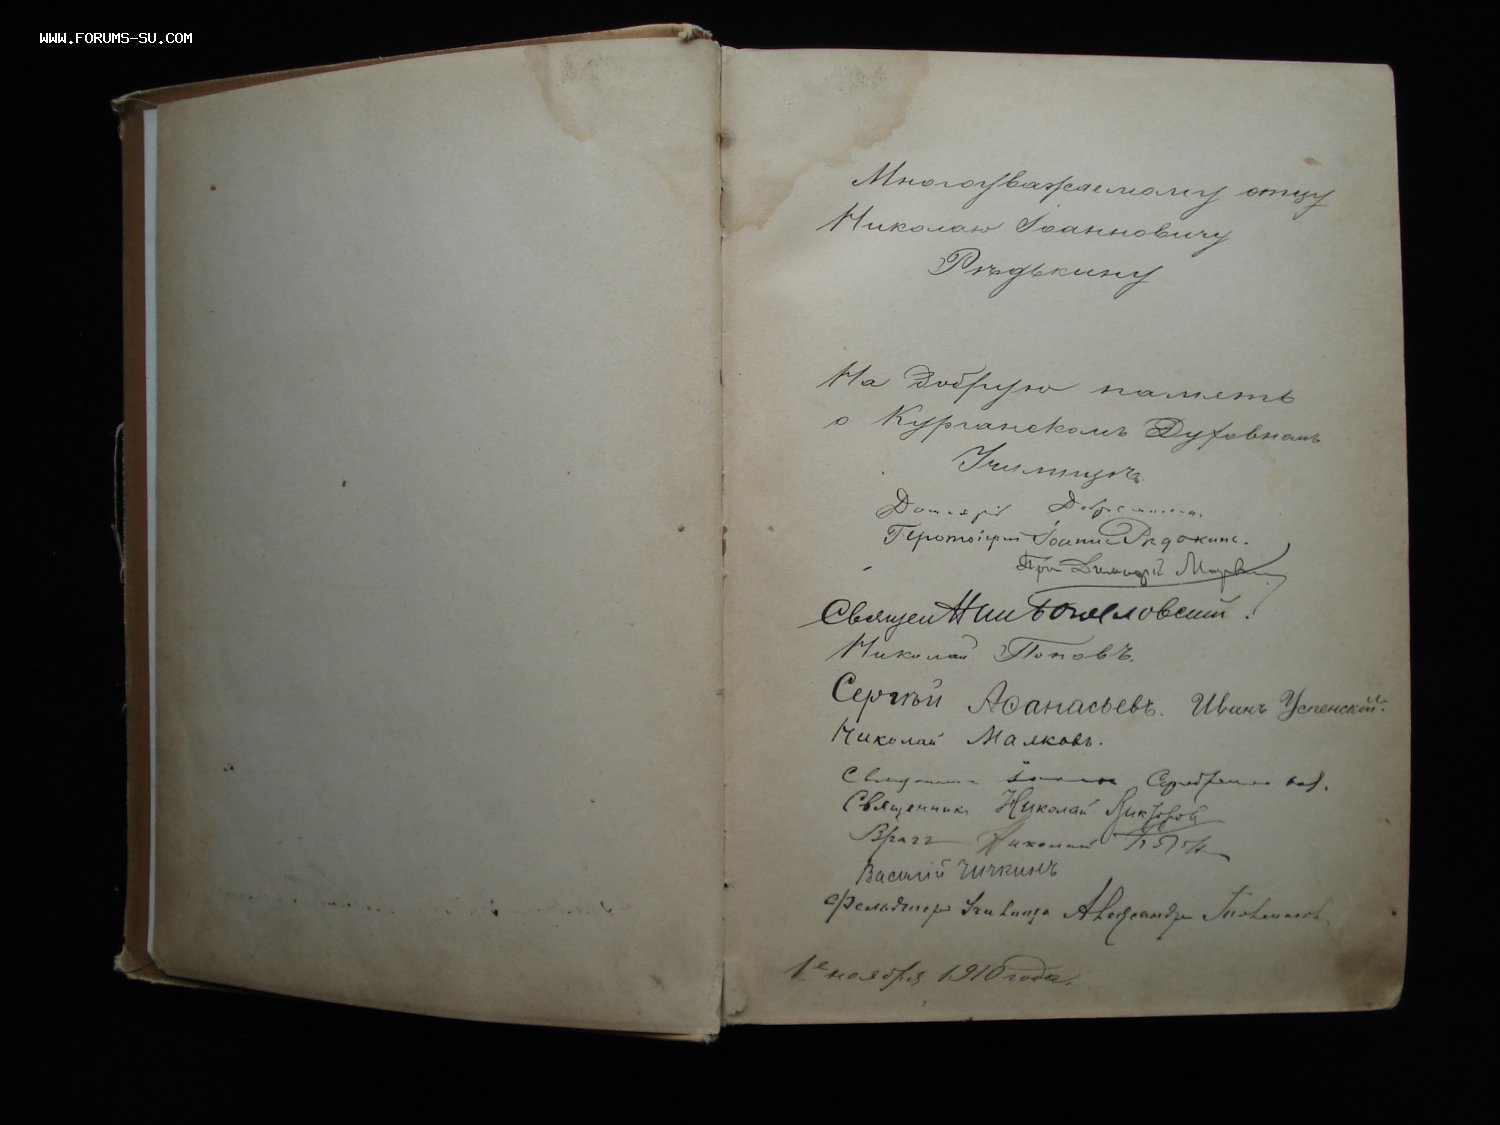 WWW.FORUMS-SU.COM
Многоуважаемому отцу
Николаю Іоанновичу
Рѣдькину
На Добрую память
о Курганскомъ Духовномъ
Училищѣ
Протоіерей Іоаннъ Рѣдькинъ.
Димитрій
Священ Богословскій.
Николай Поповъ.
Сергѣй Афанасьевъ. Иванъ Успенскій.
Николай Малковъ.
Священникъ
Священникъ Николай Викторов
Врачъ
Василій Чичкинъ
Фельдшеръ Училища Александръ
1е ноября 1910 года.